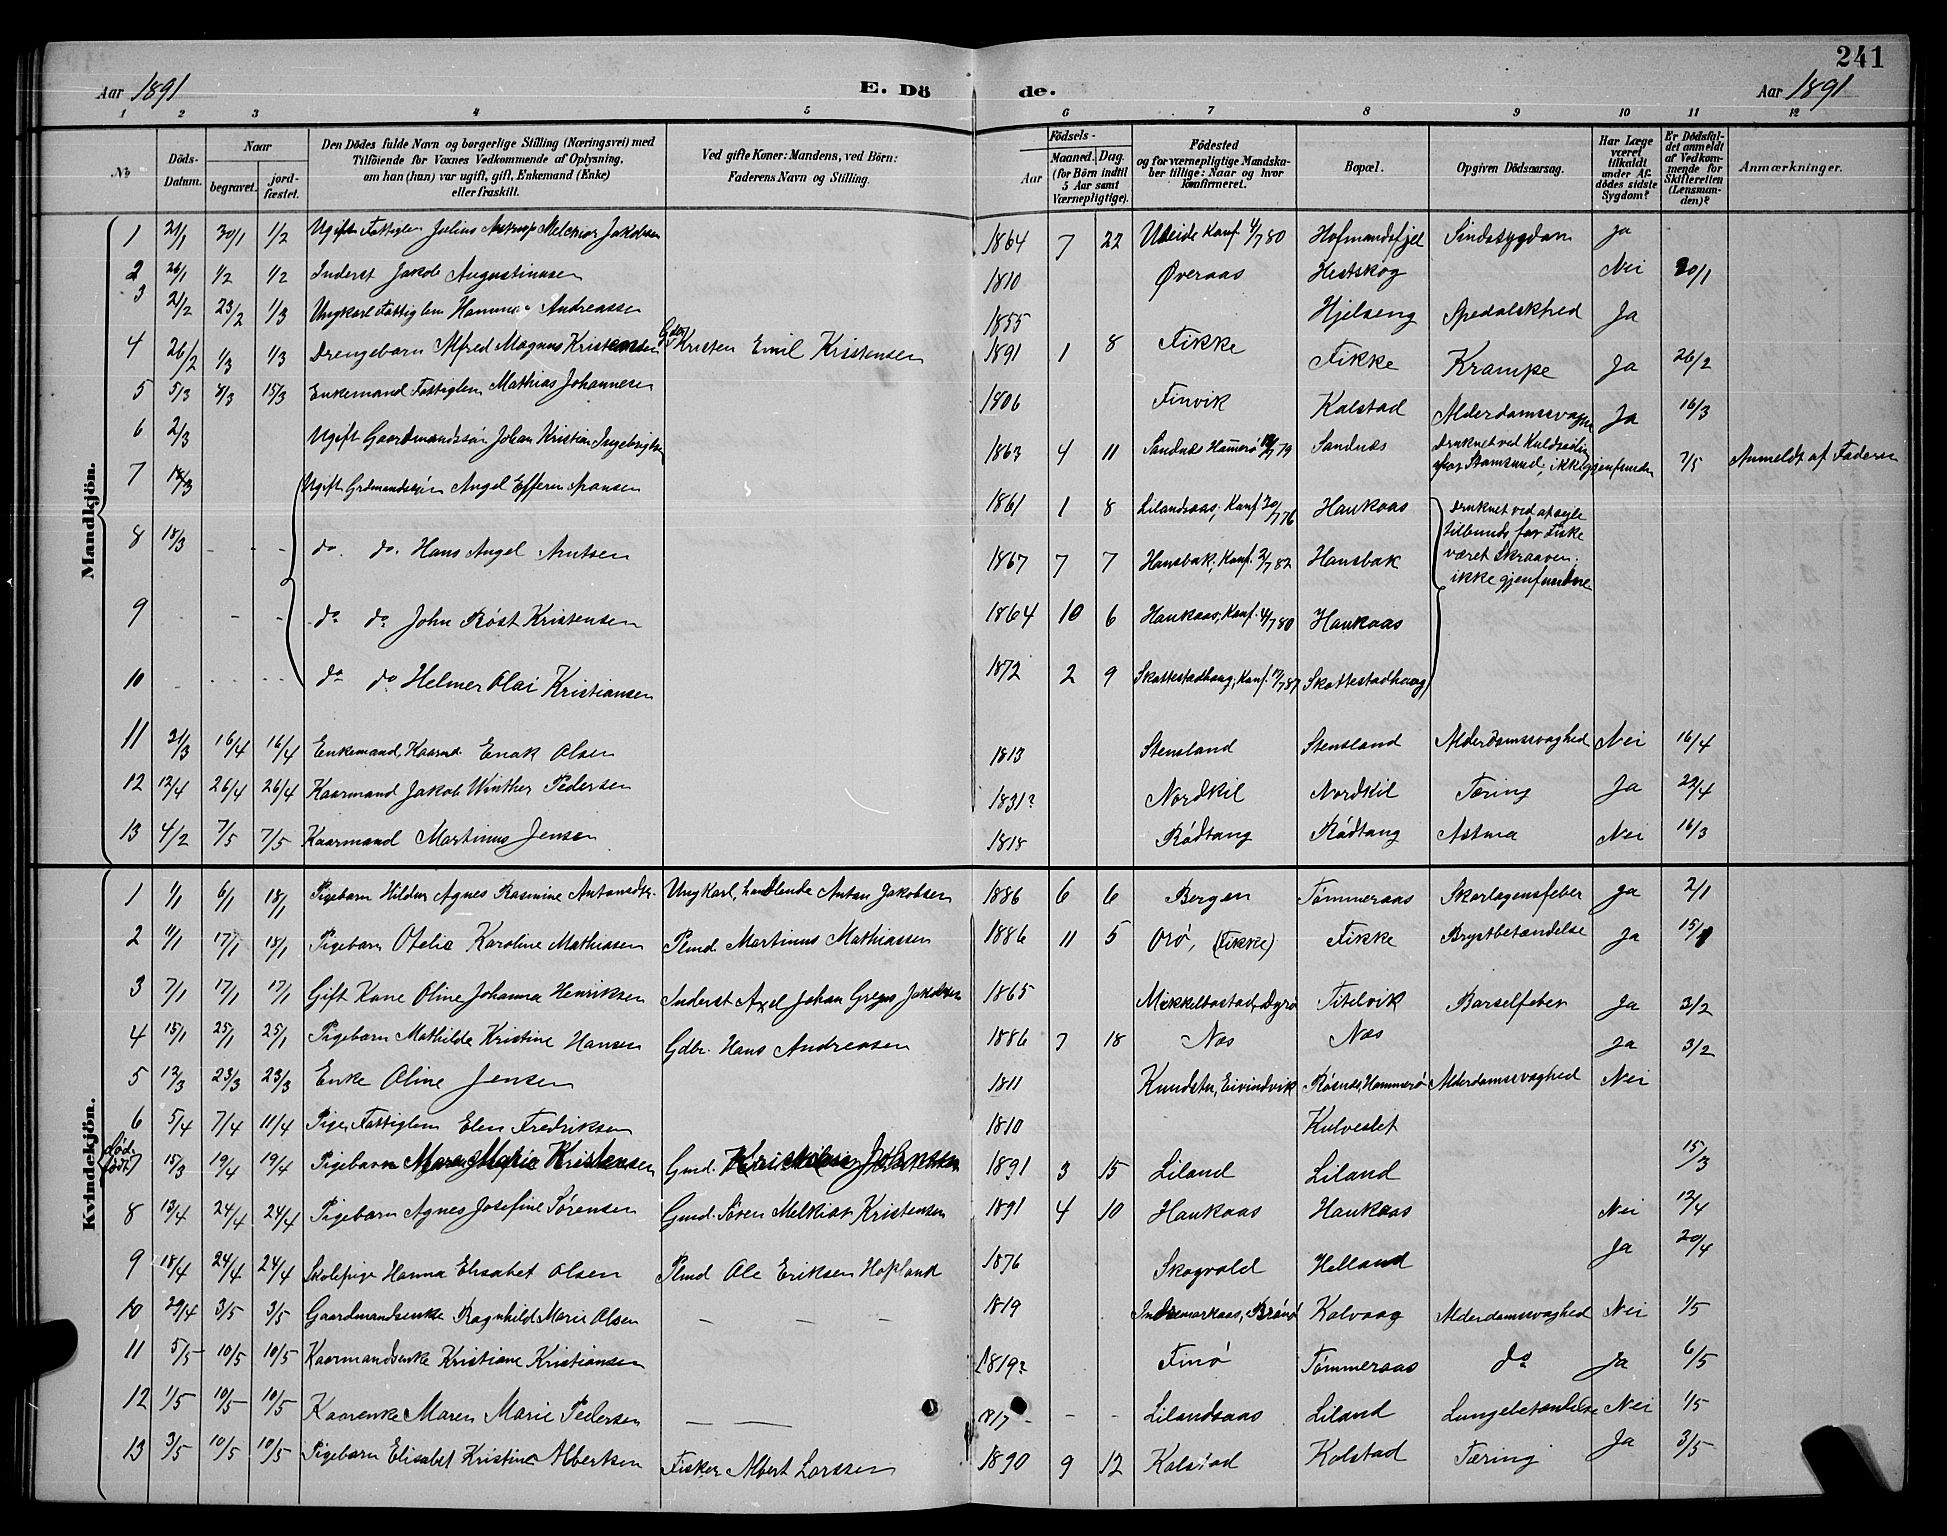 241
Aar 1891 E. Dö de. Aar 1891
1 2 3 4 5 6 7 8 9 10 11 12
No
Döds-Datum.
Naar
begravet.
jord-fæstet.
Den Dödes fulde Navn og borgerlige Stilling (Næringsvei) med
Tilföiende for Voxnes Vedkommende af Oplysning,
om han (hun) var ugift, gift, Enkemand (Enke)
eller fraskilt.
Ved gifte Koner: Mandens, ved Börn:
Faderens Navn og Stilling.
Födsels-
Aar
Maaned. Dag.
(for Börn indtil
5 Aar samt
Værnepligtige).
Födested
og for værnepligtige Mandska-
ber tillige: Naar og hvor
konfirmeret.
Bopæl.
Opgiven Dödsaarsag.
Har Læge
været
tilkaldt
under Af-
dödes sidste
Sygdom?
Er Dödsfal-
det anmeldt
af Vedkom-
mende for
Skifteretten
(Lensman-
den)?
Anmærkninger.
Mandkjön.
1 21/1 30/1 1/2 Ugift Fattiglem Julius Astrup Melchior Jakobsen 1864 7 22 Uteide Konf. 4/7 80 Hofmandsfjel Sindssygdom Ja
2 26/1 1/2 1/2 Inderst Jakob Augustinusen 1810 Øveraas Hestskog Nei 30/1
3 2/2 23/2 1/3 Ungkarl Fattiglem Andreassen 1855 Hjelseng Spedalskhed Ja
4 26/2 1/3 1/3 Drengebarn Alfred Magnus Kristensen Kristen Emil Kristensen 1891 1 8 Fikke Fikke Krampe Ja 26/2
5 5/3 8/3 15/3 Enkemand Fattiglem Mathias Johannesen 1806 Finvik Kalstad Alderdomssvagh Ja 16/3
6 2/3 Ugift Gaardmandssøn Johan Kristian Ingebrigtsen 1863 4 11 Sandnæs Hammerø 79 Sandnæs Druknet ved Kuldseiling
Stamsund, ikke gjenfunden 7/5 Anmeldt af Faderen
7 18/3 Ugift Grdmandssøn Angel Efferen 1861 1 8 Lilandsaas, Konf. 20/7 76 Haukaas Druknet ved at seile
8 18/3 - - do. do. Hans Angel Arntsen 1867 7 7 Hansbak, Konf. 2/7 82 Hansbak tilbunds for Fiske
været Skraaven;
ikke gjenfundne
9 - - do do John Røst Kristensen 1864 10 6 Haukaas, Konf. 4/7 80 Haukaas
10 do do Helmer Olai Kristiansen 1872 2 9 Skottestadhaug, Konf. 87 Skottestadhaug
11 31/3 16/4 16/4 Enkemand, Kaarmd. Enok Olsen 1813 Stensland Stensland Alderdomssvaghed Nei 16/4
12 12/4 26/4 26/4 Kaarmand Jakob Winther Pedersen 1831? Nordkil Nordkil Tæring Ja 22/4
13 4/2 7/5 7/5 Kaarmand Martinus Jensen 1818 Rødtang Rødtang Astma Nei 16/3
Kvindekjön.
1 1/1 6/1 18/1 Pigebarn Hildur Agnes Rasmine Antonsdtr. Ungkarl, handlende Anton Jakobsen 1886 6 6 Bergen Tømmeraas Skarlagensfeber Ja 2/1
2 11/1 17/1 18/1 Pigebarn Otelia Karoline Mathiassen Plmd. Martinus Mathiassen 1886 11 5 Orø, (Fikke) Fikke Brystbetændelse Ja 15/1
3 7/1 17/1 17/1 Gift Kone Oline Johanna Henriksen Inderst Axel Johan Jakobsen 1865 Mikkelbostad, Dyrø Titelvik Barselfeber Ja 3/2
4 15/1 25/1 25/1 Pigebarn Mathilde Kristine Hansen Gdbr. Hans Andreasen 1886 7 18 Næs Næs Ja 3/2
5 12/3 23/3 23/3 Enke Oline Jensen 1811 Eivindvik Røsnæs, Hammerø Alderdomssvaghed Nei
6 5/4 7/4 11/4 Pige, Fattiglem Elen Fredriksen 1810 Kulveslet
Död-
född 7 15/3 19/4 19/4 Pigebarn Maren Marie Kristensen Gmd. 1891 3 15 Liland Liland 15/3
8 13/4 24/4 24/4 Pigebarn Agnes Josefine Sørensen Gmd. Søren Melkior Kristensen 1891 4 10 Haukaas Haukaas Nei 12/4
9 18/4 24/4 24/4 Skolepige Hanna Elisabet Olsen Plmd Ole Eriksen Hopland 1876 Skogvold Helland Ja 20/4
10 29/4 3/5 3/5 Gaardmandsenke Ragnhild Marie Olsen - - - 1819 Kalvaag Alderdomssvaghed Nei 1/5
11 5/5 10/5 10/5 Kaarmandsenke Kristiane Kristiansen 1819? Finø Tømmeraas do Ja 6/5
12 1/5 10/5 10/5 Kaarenke Maren Marie Pedersen — — 1817 - - - Lilandsaas Liland Lungebetændelse Nei 1/5
13 3/5 10/5 10/5 Pigebarn Elisabet Kristine Albertsen Fisker Albert Larssen 1890 9 12 Kalstad Kalstad Tæring Ja 3/5